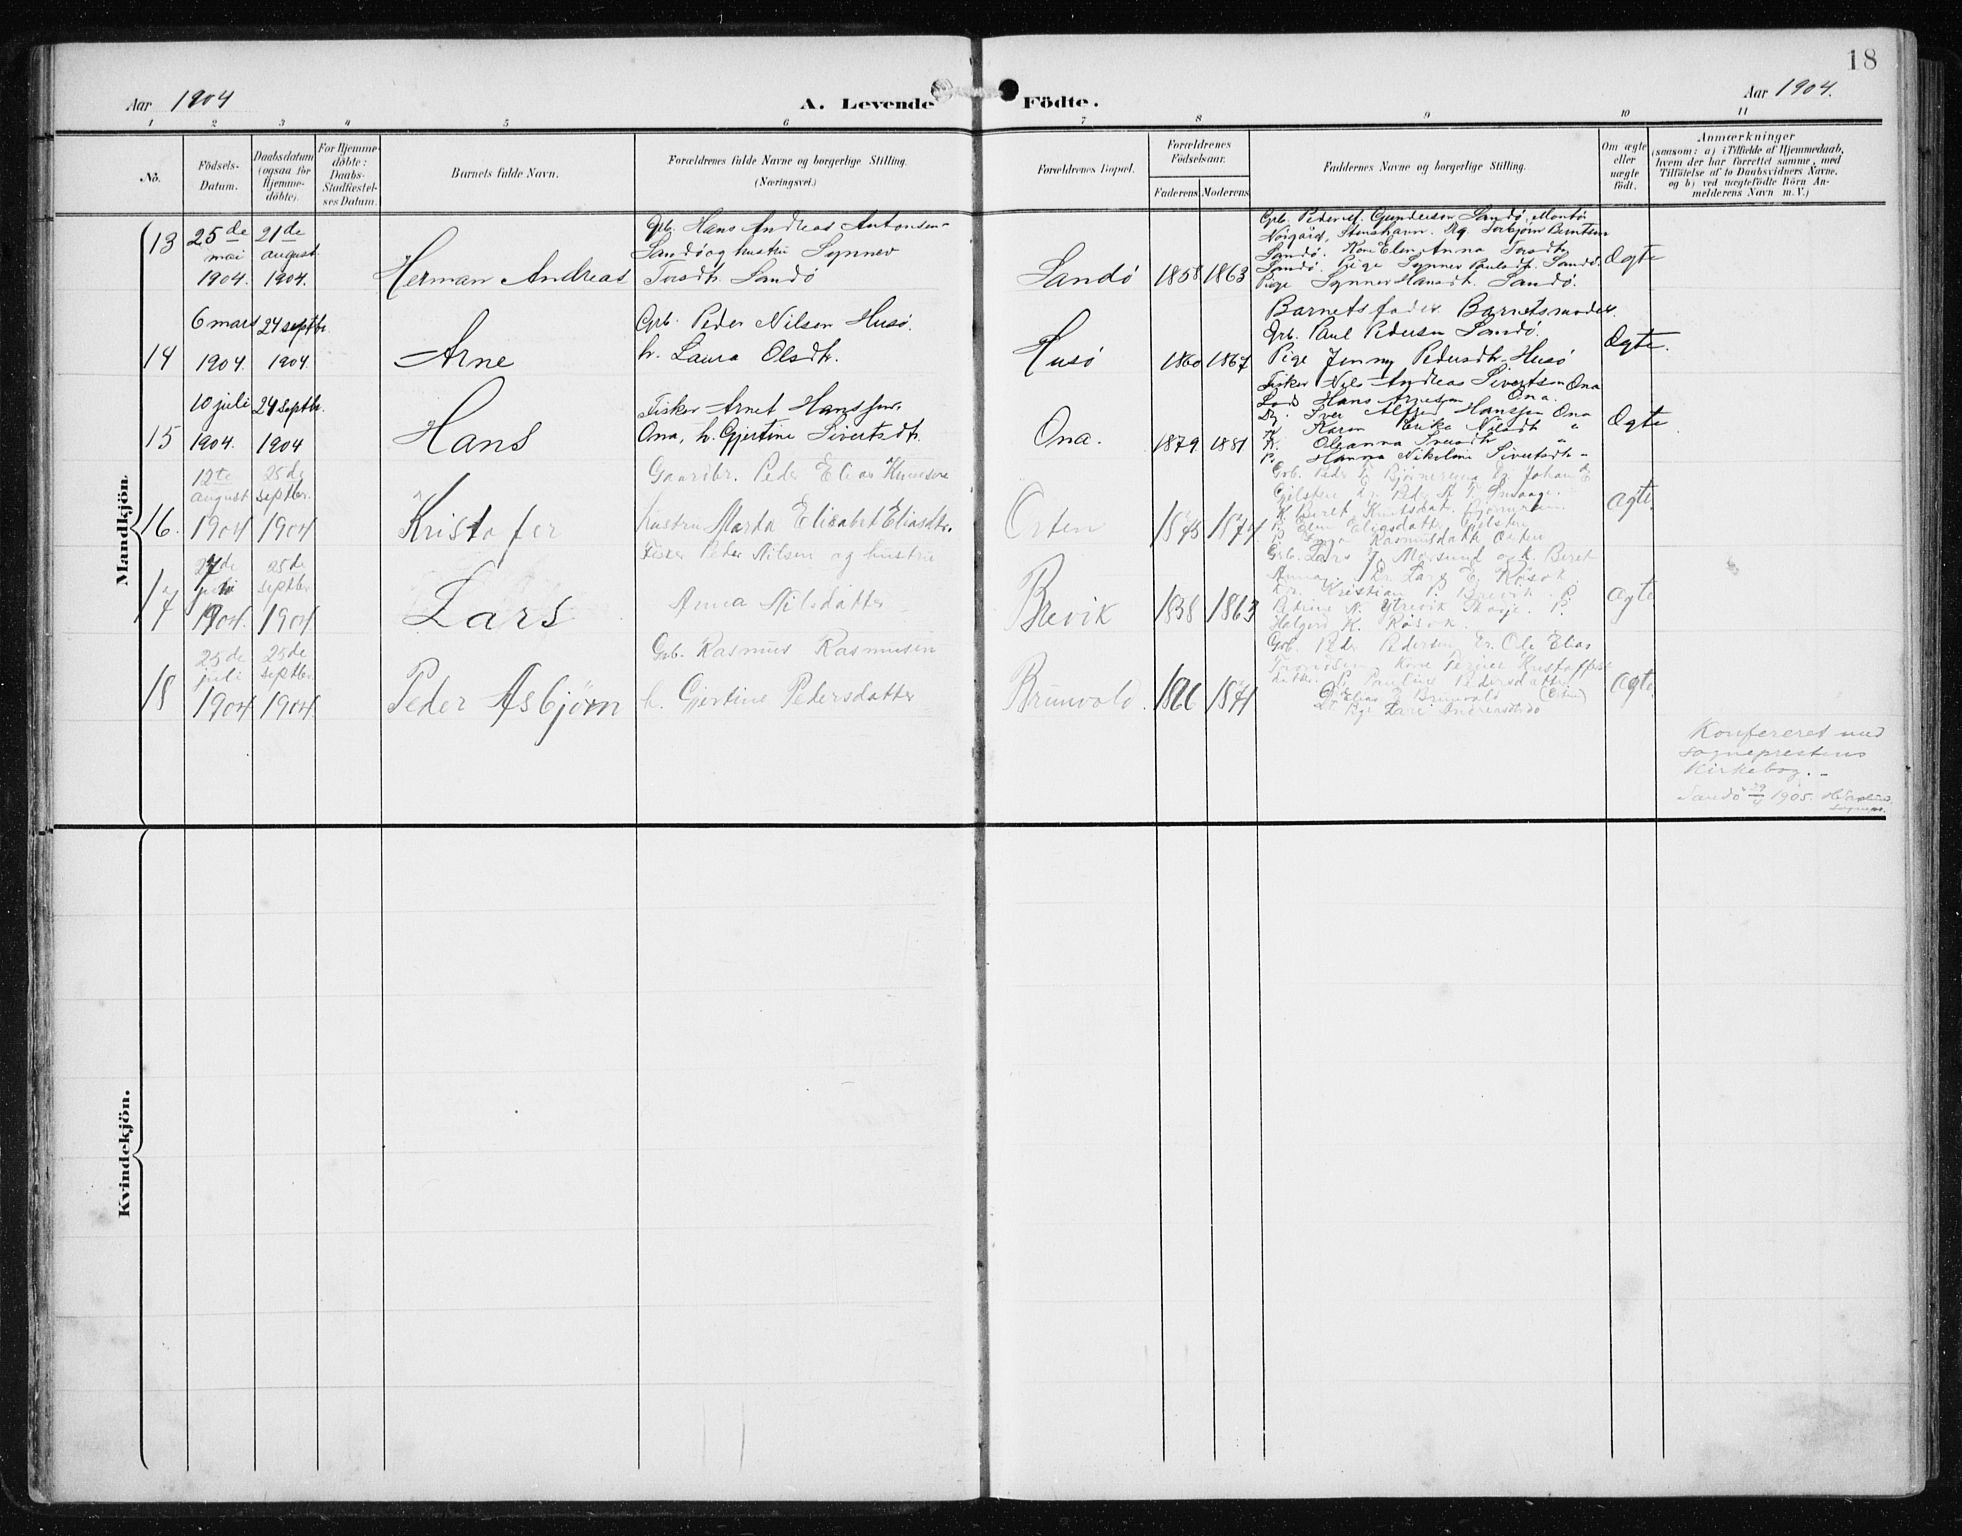 18
Aar 1904
A. Levende Födte.
Aar 1904.
1 2 3 4 5 6 7 8 9 10 11
No.
Födsels-
Datum.
Daabsdatum
(ogsaa for
Hjemme-
döbte).
For Hjemme-
döbte:
Daabs-
Stadfæstel-
ses Datum.
Barnets fulde Navn.
Forældrenes fulde Navne og borgerlige Stilling.
(Næringsvei.)
Forældrenes Bopæl.
Forældrenes
Födselsaar.
Faderens Moderens
Faddernes Navne og borgerlige Stilling.
Om ægte
eller
uægte
födt.
Anmærkninger
(saasom: a) i Tilfælde af Hjemmedaab,
hvem der har forrettet samme, med
Tilföielse af to Daabsvidners Navne,
og b) ved uægtefödte Börn An-
melderens Navn m. V.)
Mandkjön.
13
25de
mai
1904.
21de
august
1904.
Herman Andreas
Grb. Hans Andreas Antonsen
Sandö og hustru Synnev
Torsdtr. Sandö
Sandö
1858 1863
Grb. Peder Gunderson Sandö,
Nörgård, Stenshavn. Ug. Torbjörn Berntsen
Sandö. Kone Elen Anna Torsdtr.
Sandö. Pige Synnev Paulsdtr. Sandö.
Pige Synnev Hansdtr. Sandö.
Ægte
14
6 mars
1904.
24 septbr.
1904.
Arne
Grb. Peder Nilsen Husö.
h. Laura Olsdtr.
Husö
1860 1867
Barnets fader Barnets moder.
Grb. Paul Pedersen Sandö.
Pige Jenny Pedersdtr. Husö
Ægte.
15
10 juli
1904.
24 septbr.
1904
Hans
Fisker Arnet Hanssen.
Ona, h. Gjertine Sivertsdtr.
Ona.
1879 1881
Fisker Nils Andreas Sivertsen Ona
Hans Arnesen Ona.
Ug. Iver Alfred Hanssen Ona
K. Karen Erika Nilsdtr "
K. Oleanna "
P. Hanna Nikoline Sivertsdtr "
Ægte
16.
12te
august
1904
25de
septbr.
1904
Kristofer
Gaardbr. Peder Elias Knutsen
Hustru Marta Elisabet Eliasdtr.
Orten
1873 1874
Grb. Peder E Bjørnerem Johan E
Gjelsten
K. Beret Knutsdatt. Bjørnerem
P. Elen Eliasdatter Gjelsten
P. Rasmusdatte Orten
Ægte.
17
27de
juli
1904.
25de
septbr
1904
Lars
Fisker Peder Nilsen og hustru
Anna Nilsdatter
Brevik
1838 1863
Grb. Lars J. Morsund og k. Beret
Anna. Lars E. Røsok
Kristian P. Brevik. P.
Petrine N. Ytrevik P.
Halgerd K. Røsok.
Ægte
18
25de
juli
1904
25de
septbr.
1904
Peder Asbjørn
Grb. Rasmus Rasmusen
h. Gjertine Pedersdatter
Brunvold.
1866 1871
Grb. Peder Pedersen Ole Elias
Kone Kristoffer
P. Pauline Pedersdatter
Elias Brunvold (Orten)
Ægte.
Konfereret med
sogneprestens
Kirkebog. –
Sandö 29/ 1905.
Kvindekjön.